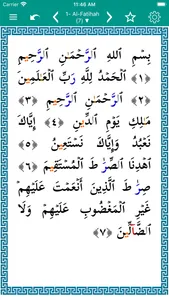 11:48 AM
1- Al-Fatihah
(7) ▼
بِسْمِ ٱللهِ ٱلرَّحْمَٰنِ ٱلرَّحِيمِ
﴿١﴾ ٱلْحَمْدُ لِلَّهِ رَبِّ ٱلْعَٰلَمِينَ
﴿٢﴾ ٱلرَّحْمَٰنِ ٱلرَّحِيمِ ﴿٣﴾
مَٰلِكِ يَوْمِ ٱلدِّينِ ﴿٤﴾ إِيَّاكَ
نَعْبُدُ وَإِيَّاكَ نَسْتَعِينُ ﴿٥﴾
ٱهْدِنَا ٱلصِّرَٰطَ ٱلْمُسْتَقِيمَ ﴿٦﴾
صِرَٰطَ ٱلَّذِينَ أَنْعَمْتَ عَلَيْهِمْ
غَيْرِ ٱلْمَغْضُوبِ عَلَيْهِمْ وَلَا
ٱلضَّآلِّينَ ﴿٧﴾